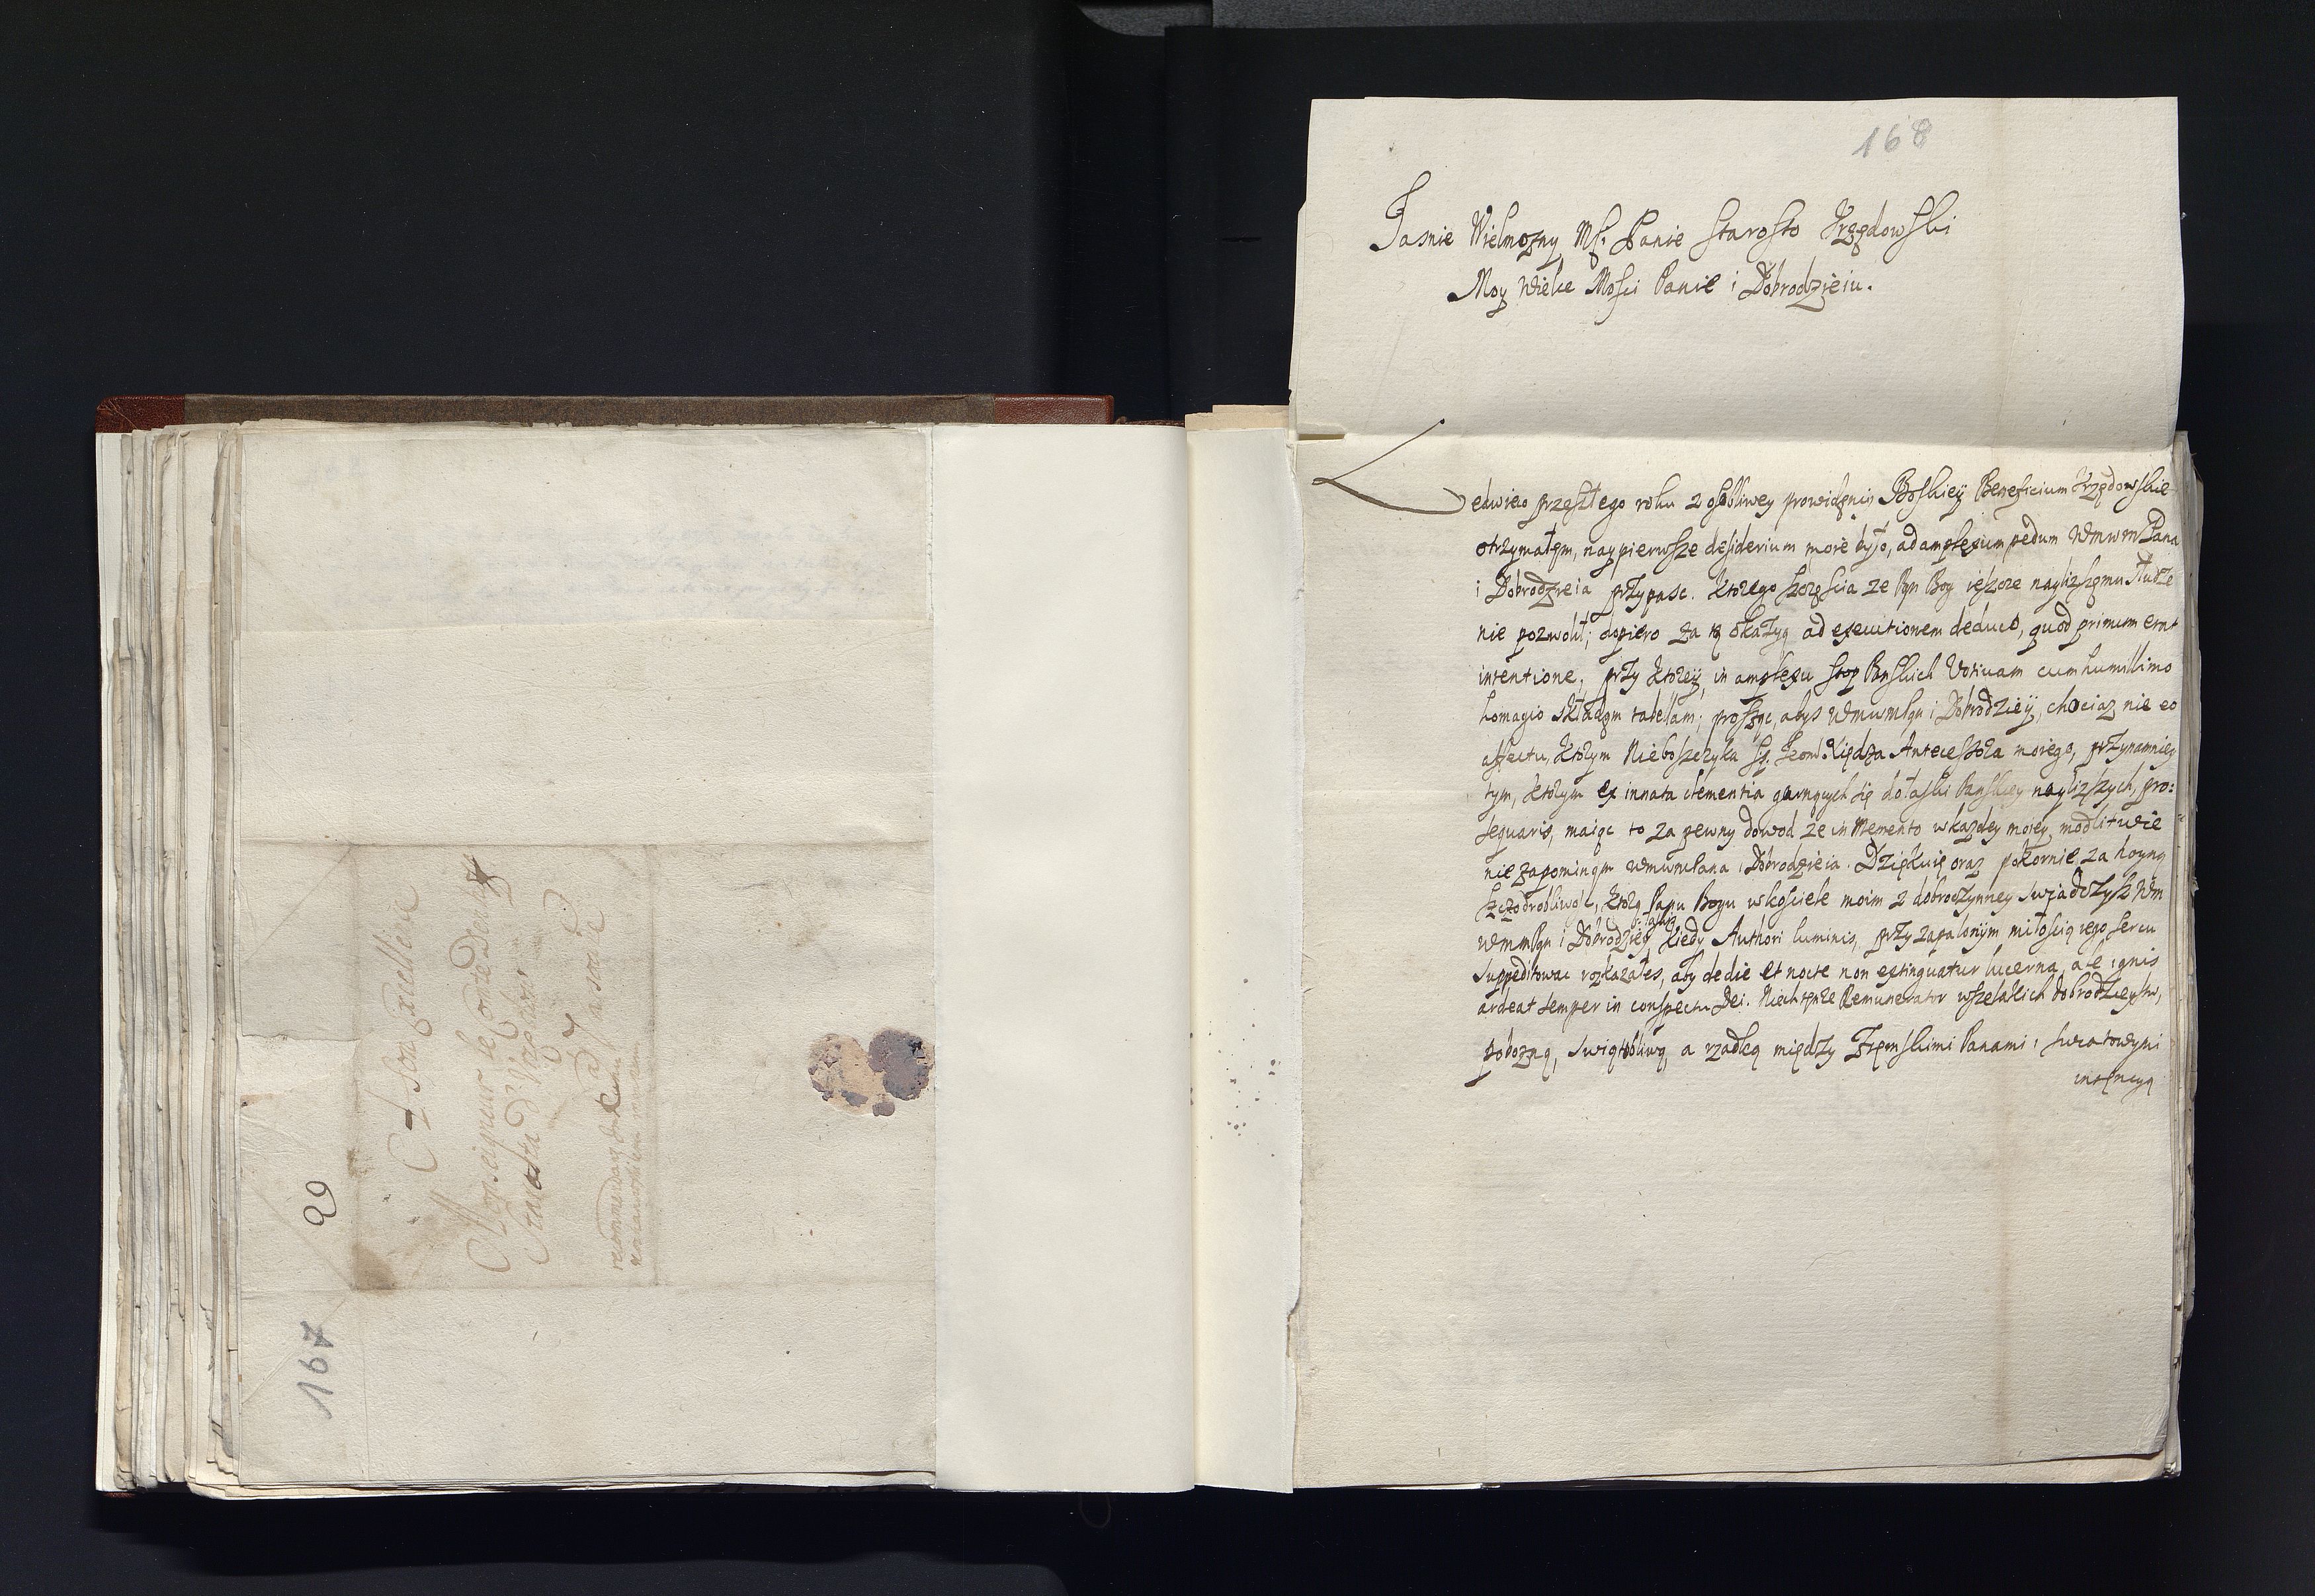 A Son Excellence
Monseigneur le Comte Denhoff
Staroste d'Urzędow
à Jasowie
recommendare
29
167
168
Jasnie Wielmozny Mś. Panie Starosto Urzędowski
Moy Wielce Mosci Panie i Dobrodzieiu.
Ledwiem przeszłego roku z osobliwey prowidencij Boskieÿ Beneficium Urzędowskie
otrzymałem, naypierwsze desiderium moie było, ad amplexum pedum WmwmPana
i Dobrodzieia przypasc. Ktorego szczęscia ze Pan Bog ieszcze nayliszemu słudze
nie pozwolił; dopiero za tą okazyą ad executionem deduco, quod primum erat
intentione, przy ktoreÿ, in amplexu stop Panskich Votivam cum humillimo
homagio składam tabellam; prosząc, abys Wmwmśpan i Dobrodzieÿ, chociaz nie eo
affectu, ktorym Nieboszczyka śp. Jeom. Xiędza Antecessora moiego, przynamniey
tym, ktorym ex innata clementia garnących się do łaski Panskiey nayliszych, pro:
sequaris, maiąc to za pewny dowod ze in Memento w kazdey moiey modlitwie
nie zapominam WmwmPana i Dobrodzieia. Dziękuię oraz pokornie za hoyną
szczodrobliwosc, ktorą Panu Bogu w kosciele moim z dobroczynney swiadczysz Wm
Wmmśpan i Dobrodziey, kiedy Authori luminis, przy zapalonÿm miłoscią iego sercu
suppeditowac rozkazałes, aby de die et nocte non extinguatur lucerna, ale ignis
ardeat semper in conspectu Dei. Niech tenze Remunerator wszelakich dobrodzieystw,
poboznę, swiątobliwą, a rzadką między Ziemskimi Panami i swiatowymi
intencyą